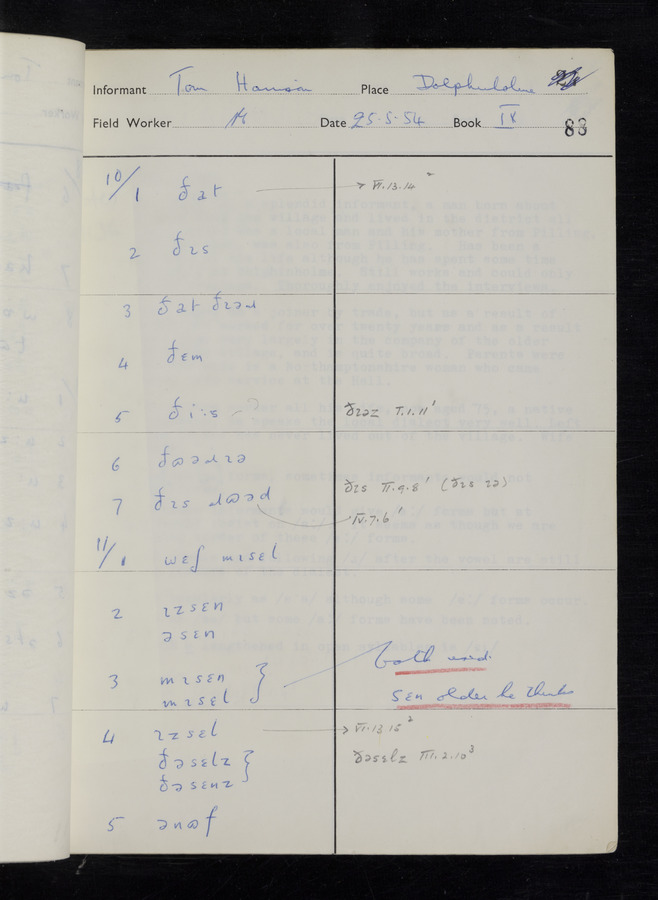 Informant Tom Harrison Place Dolphinholme
Field Worker Date 25.5.54 Book IX 83
10/1 ðat → VI.13.14²
2 ðɪs
3 ðat ðɪəɹ
4 ðɛm
5 ði:s ? ðɪəz I.1.11¹
6 ðɷəɹɪə
7 ðɪs ɹɷəd ðɪs II.9.8¹ (ðɪs ɪə)
IV.7.6¹
11/1 wɛʃ mɪsɛl
2 ɪzsɛn
əsɛn
3 mɪsɛn } both used.
mɪsɛl sɛn older he thinks
4 ɪzsɛl → VI.13.15²
ðəsɛlz } ðəsɛlz III.2.10³
ðəsɛnz
5 ənɷf